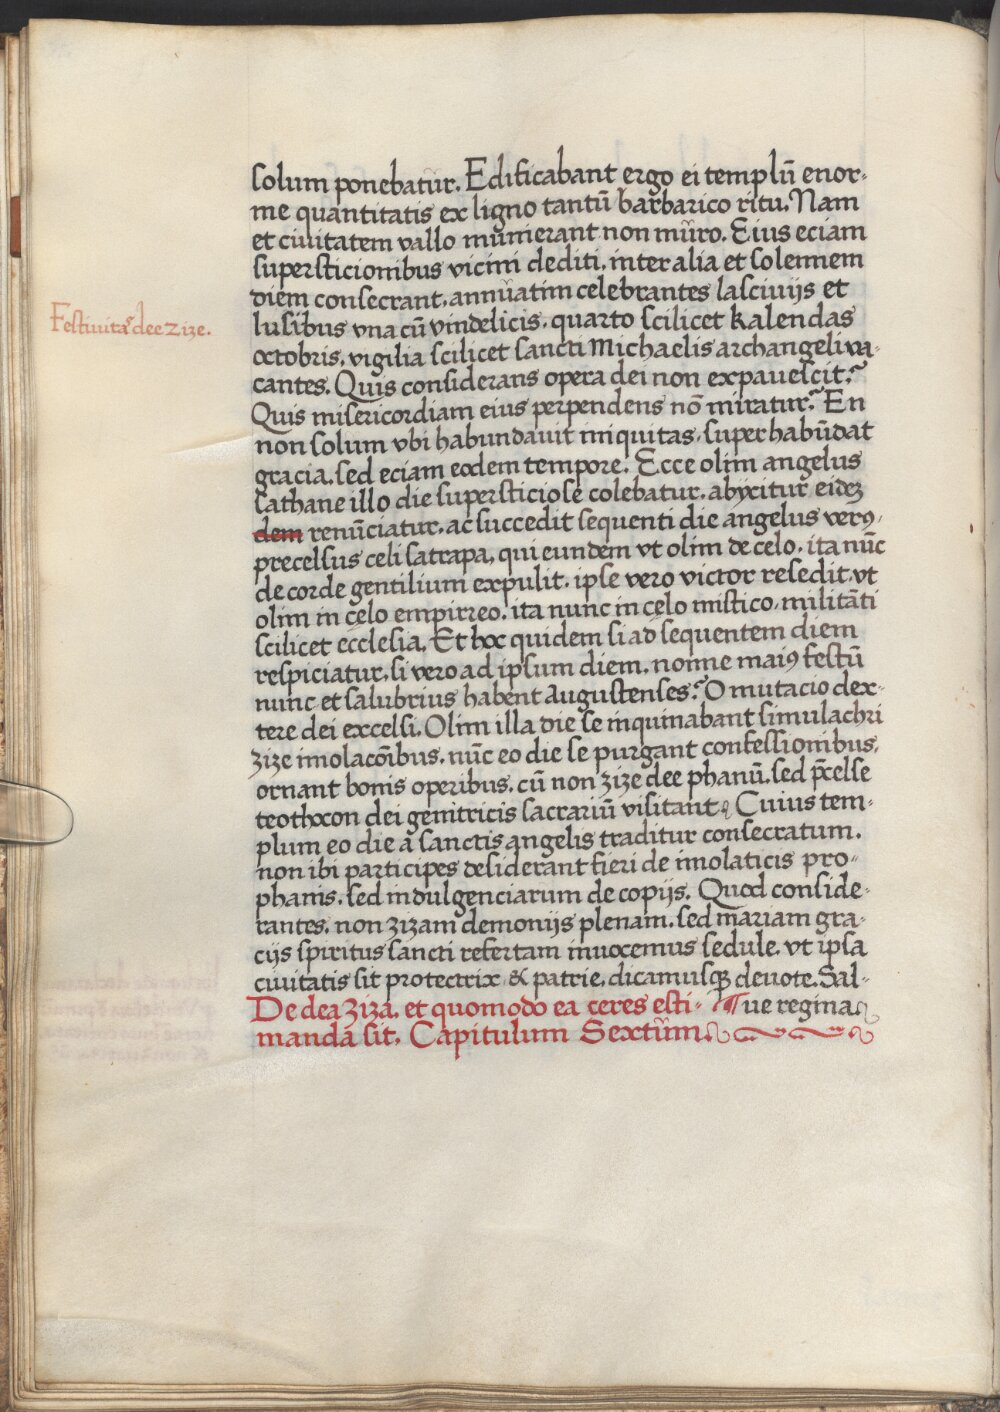 solum ponebatur. Edificabant ergo ei templū enor-
me quantitatis ex ligno tantū barbarico ritu. Nam
et ciuitatem vallo munierant non muro. Eius eciam
supersticionibus vicini dediti, inter alia et solennem
diem consecrant, annuatim celebrantes lasciuijs et
Festiuitaˢ dee zize.
lusibus vna cū vindelicis, quarto scilicet kalendas
octobris, vigilia scilicet sancti Michaelis archangeli va-
cantes. Quis considerans opera dei non expauescit?
Quis misericordiam eius perpendens nō miratur? En
non solum vbi habundauit iniquitas, superhabūdat
gracia, sed eciam eodem tempore. Ecce olim angelus
sathane illo die supersticiose colebatur, abijcitur eidēꝫ
dem renūciatur, ac succedit sequenti die angelus verꝰ,
precelsus celi satrapa, qui eundem vt olim de celo, ita nūc
de corde gentilium expulit, ipse vero victor resedit, vt
olim in celo empirreo, ita nunc in celo mistico, militāti
scilicet ecclesia. Et hoc quidem si ad sequentem diem
respiciatur, si vero ad ipsum diem, nonne maiꝰ festū
nunc et salubrius habent Augustenses? O mutacio dex-
tere dei excelsi. Olim illa die se inquinabant simulachri
zize imolacōibus, nūc eo die se purgant confessionibus,
ornant bonis operibus, cū non zize dee phanū, sed p̄celse
teothocon dei genitricis sacrariū visitant. Cuius tem-
plum eo die a sanctis angelis traditur consecratum.
non ibi participes desiderant fieri de imolaticis pro-
phanis, sed indulgenciarum de copijs. Quod conside-
rantes, non zizam demonijs plenam, sed mariam gra-
cijs spiritus sancti refertam inuocemus sedule, vt ipsa
ciuitatis sit protectrix & patrie, dicamusqꝫ deuote. Sal-
De dea ziza, et quomodo ea ceres esti- ¶ ue regina
manda sit. Capitulum Sextum